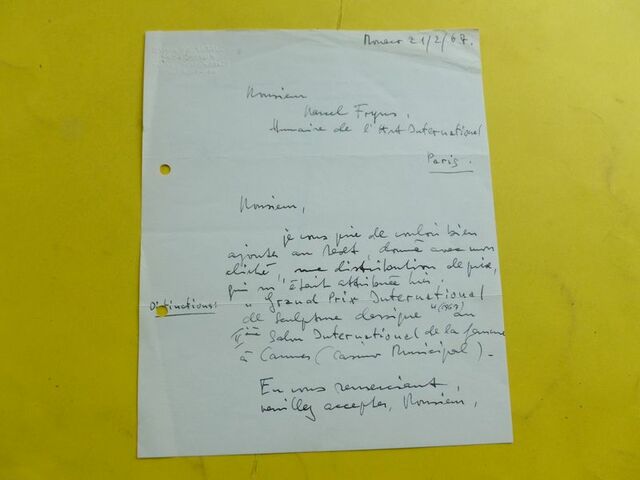 Monaco 21/2/67.
Monsieur
Marcel Fryns,
Annuaire de l'Art International
Paris.
Monsieur,
je vous prie de vouloir bien
ajouter au texte, donné avec mon
cliché, une distribution de prix,
qui m'était attribuée hier,
Distinctions:
"Grand Prix International
de Sculpture classique" (1967) au
IIème Salon International de la femme
à Cannes (Casino Municipal).
En vous remerciant,
veuillez accepter, Monsieur,